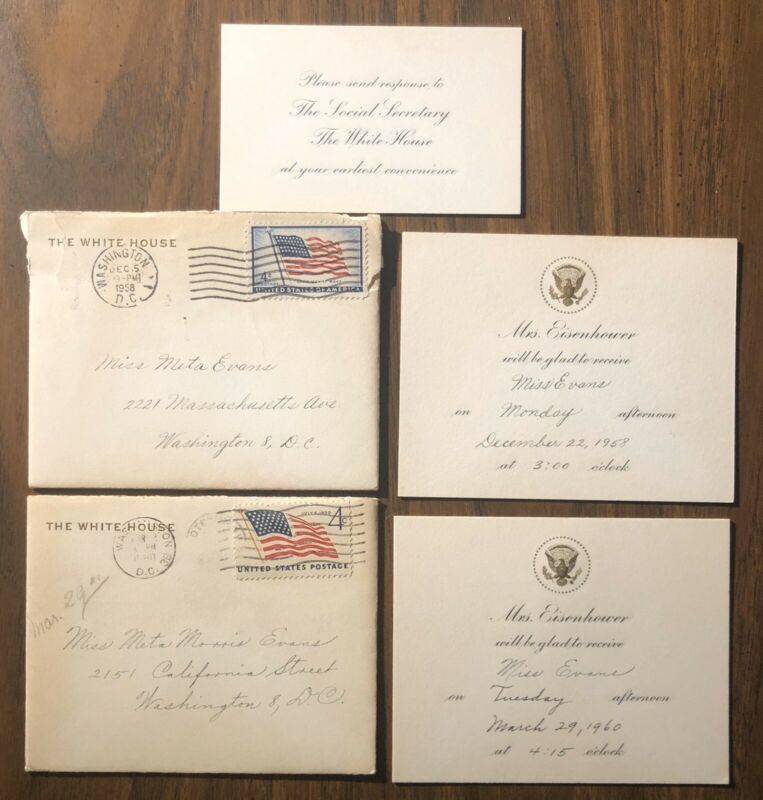 Please send response to
The Social Secretary
The White House
at your earliest convenience
THE WHITE HOUSE
WASHINGTON
DEC 5
PM
1958
D.C.
4¢
UNITED STATES OF AMERICA
Miss Meta Evans
2221 Massachusetts Ave.
Washington 8, D.C.
Mrs. Eisenhower
will be glad to receive
Miss Evans
on Monday afternoon
December 22, 1958
at 3:00 o'clock
THE WHITE HOUSE
D.C.
JULY 4, 1957
4¢
UNITED STATES POSTAGE
Mar. 29
Miss Meta Morris Evans
2151 California Street
Washington 8, D.C.
Mrs. Eisenhower
will be glad to receive
Miss Evans
on Tuesday afternoon
March 29, 1960
at 4:15 o'clock